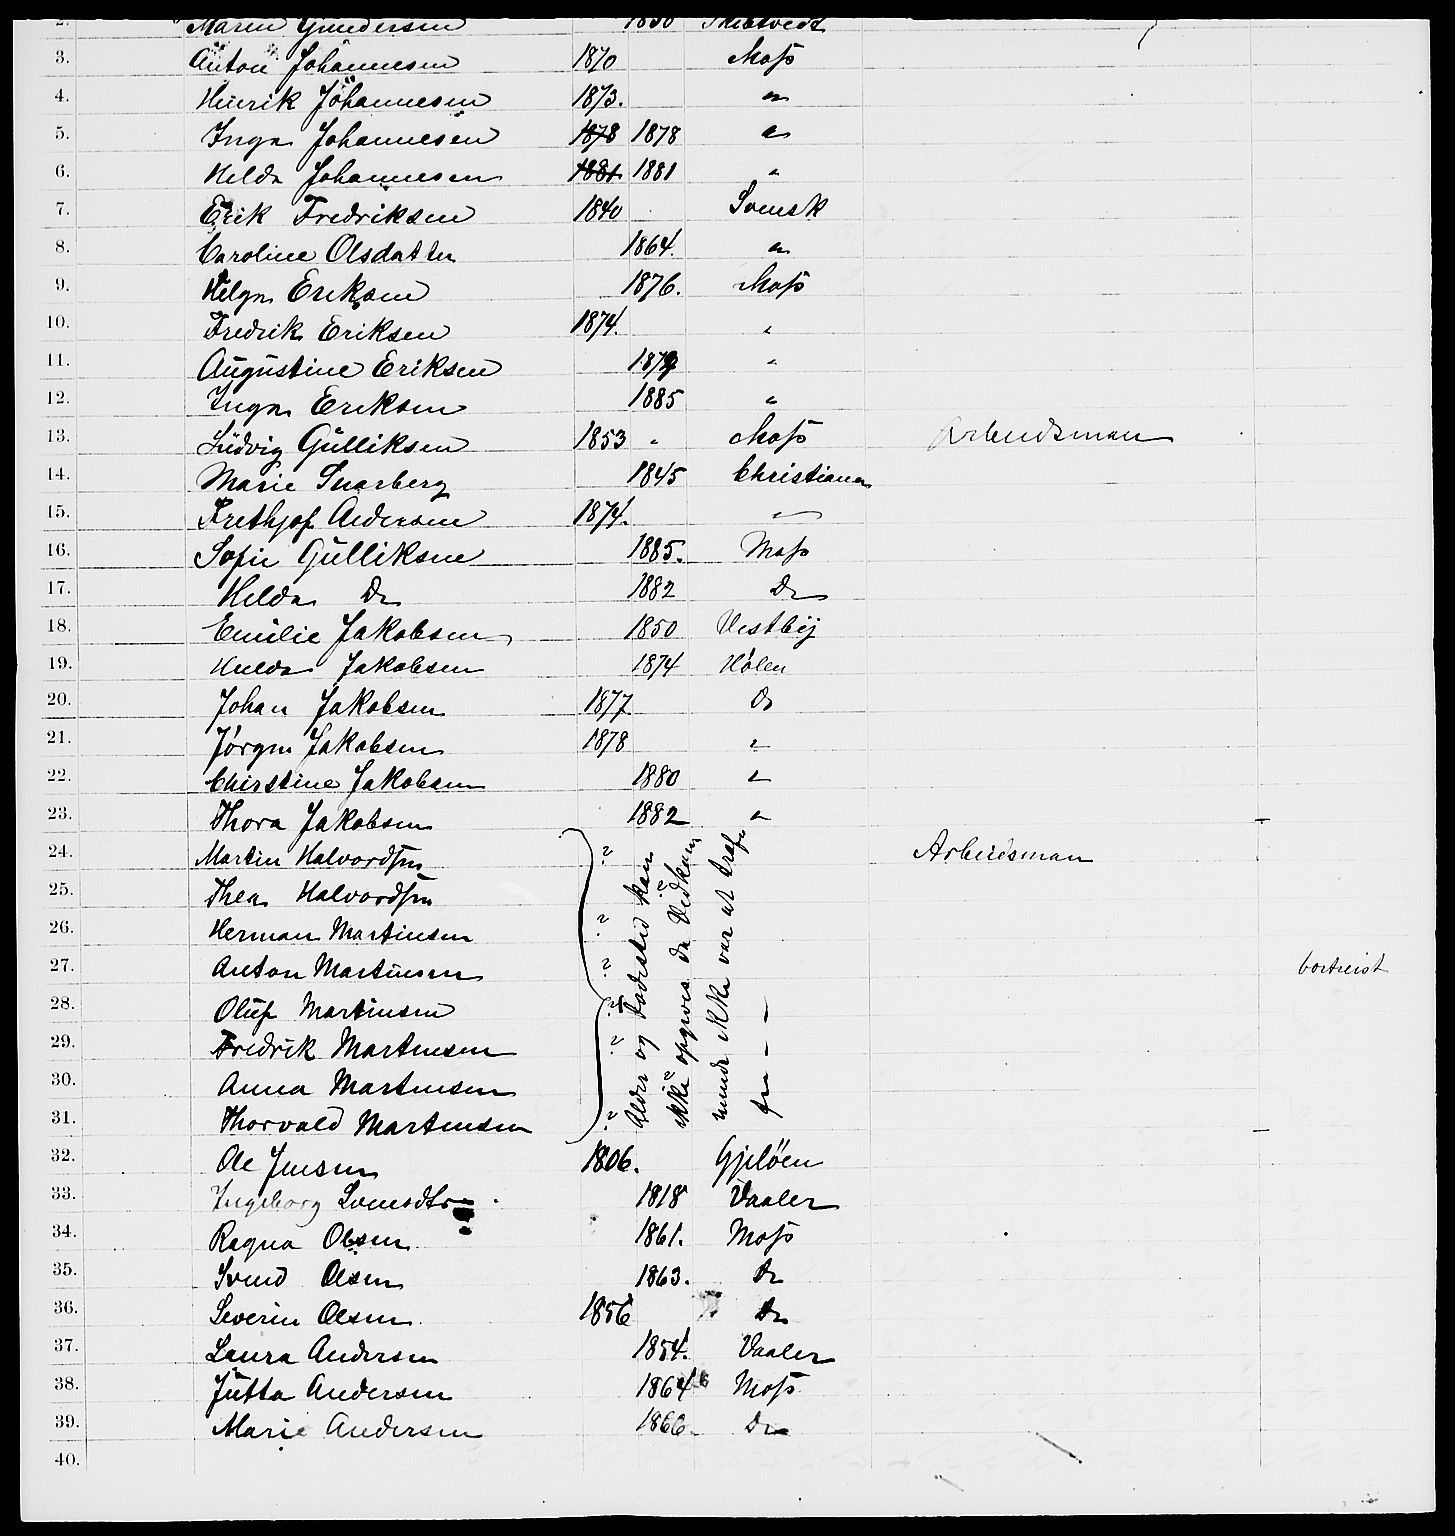 2. Maren Gundersen 1850 Skibtvedt
3. Anton Johannesen 1870 Moss
4. Hinrik Johannesen 1873. "
5. Inga Johannesen 1878 1878 "
6. Hilda Johannesen 1881 1881 "
7. Erik Fredriksen 1840 Svensk
8. Caroline Olsdatter 1864. "
9. Helga Eriksen 1876. Moss
10. Fredrik Eriksen 1874. "
11. Augustine Eriksen 1879 "
12. Inga Eriksen 1885 "
13. Ludvig Gulliksen 1853 " Moss Arbeidsman
14. Marie Snarberg 1845 Christiania
15. Frethjof Andersen 1874. "
16. Sofie Gulliksen 1885. Moss
17. Hilda Do 1882 Do
18. Emilie Jakobsen 1850 Vestby
19. Hulda Jakobsen 1874 Hølen
20. Johan Jakobsen 1877. Do
21. Jørgen Jakobsen 1878 "
22. Chirstine Jakobsen 1880 "
23. Thora Jakobsen 1882 "
24. Martin Halvordsen ? Arbeidsman
25. Thea Halvordsen ?
26. Herman Martinsen ?
27. Anton Martinsen ? bortreist
28. Oluf Martinsen ?
29. Fredrik Martinsen ?
30. Anna Martinsen ?
31. Thorvald Martinsen ?
Alder og Fødested kan
ikke opgives da Vedkom
mende ikke var at træf
fe — — —
32. Ole Jensen 1806. Gjeløen
33. Ingeborg Svensdtr 1818 Vaaler
34. Ragna Olsen 1861. Moss
35. Svend Olsen 1863. Do
36. Severin Olsen 1856 Do
37. Laura Andersen 1854. Vaaler
38. Jutta Andersen 1864 Moss
39. Marie Andersen 1866. Do
40.